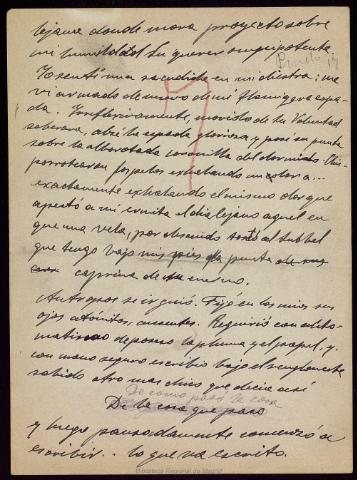 lejana donde mora proyecto sobre
mi humildad su querer omnipotente.
Yo sentí una sacudida en mi diestra: me
vi armado de nuevo de mi flamígera espa-
da. Irreflexivamente, movido de tu Voluntad
soberana, alcé la espada gloriosa y posé su punta
sobre la alborotada coronilla del dormido. Chis-
porrotearon los pelos exhalando un olor a...
exactamente exhalando el mismo olor que
apestó a mi conita el día lejano aquel en
que una vela, por descuido tostó al
que tengo bajo mis pies la punta de sus
caprina de
se irguió. Fijó en los míos sus
ojos atónitos, ausentes. Requirió con auto-
matismo de poseso la pluma y el papel. y
con mano segura escribió bajo el
sabido otro mas chico que decía así
De como pasó la cosa
De la cosa que pasó
y luego pausadamente comenzó a
escribir.. lo que va escrito.
17
Biblioteca Regional de Madrid